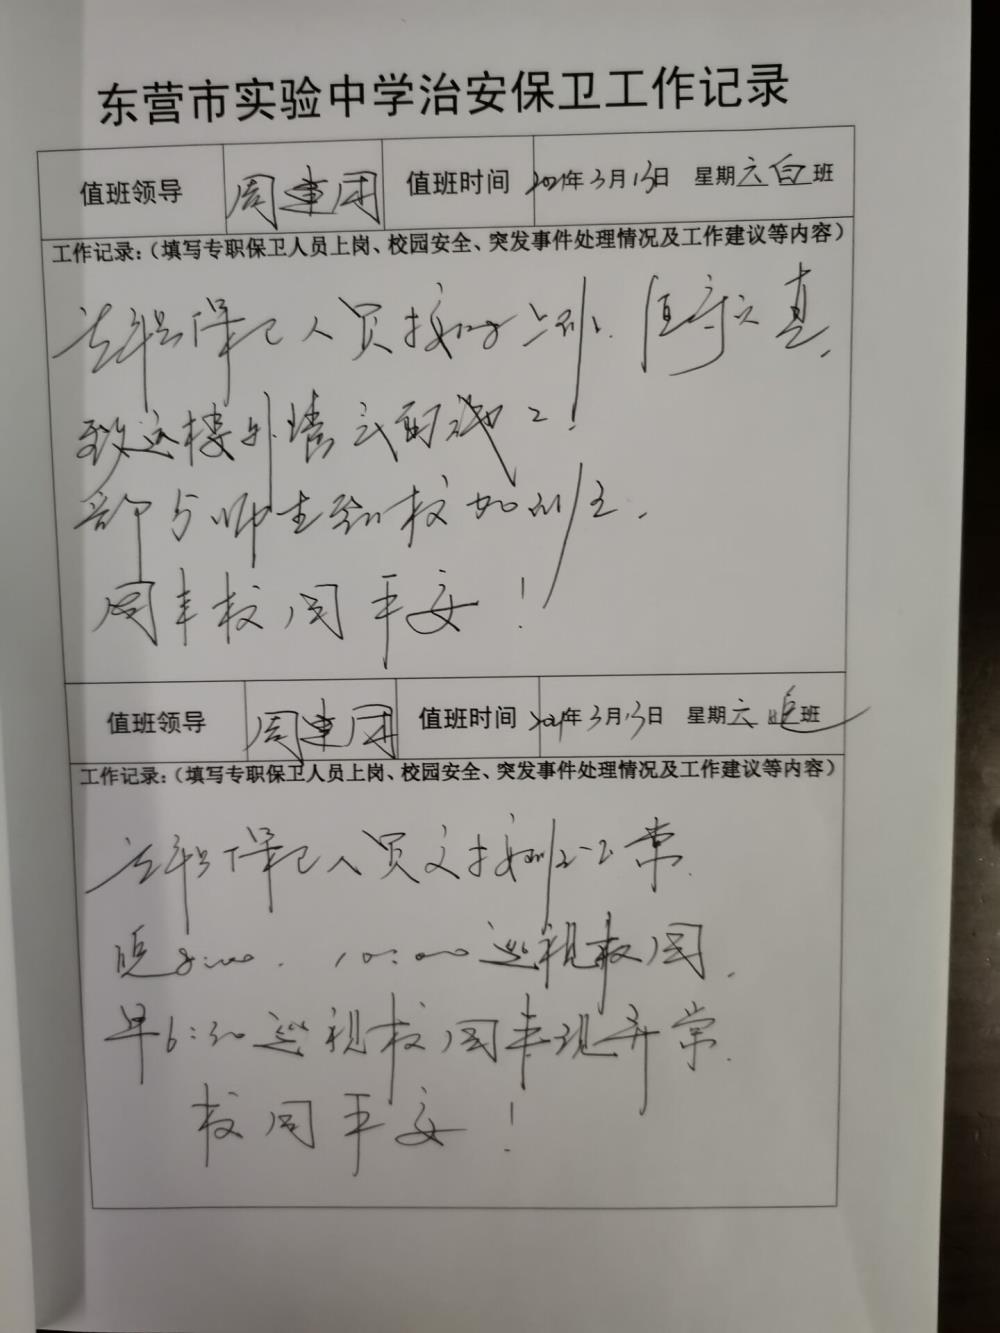 东营市实验中学治安保卫工作记录
值班领导 周建国 值班时间 2021年3月13日 星期六白班
工作记录:(填写专职保卫人员上岗、校园安全、突发事件处理情况及工作建议等内容)
专职保卫人员按时上岗.值守认真.
楼外墙
部分师生到校加班.
校园平安!
值班领导 周建国 值班时间 2021年3月13日 星期六晚班
工作记录:(填写专职保卫人员上岗、校园安全、突发事件处理情况及工作建议等内容)
专职保卫人员交接班正常.
晚8:00.10:00巡视校园.
早6:30巡视校园未现异常.
校园平安!